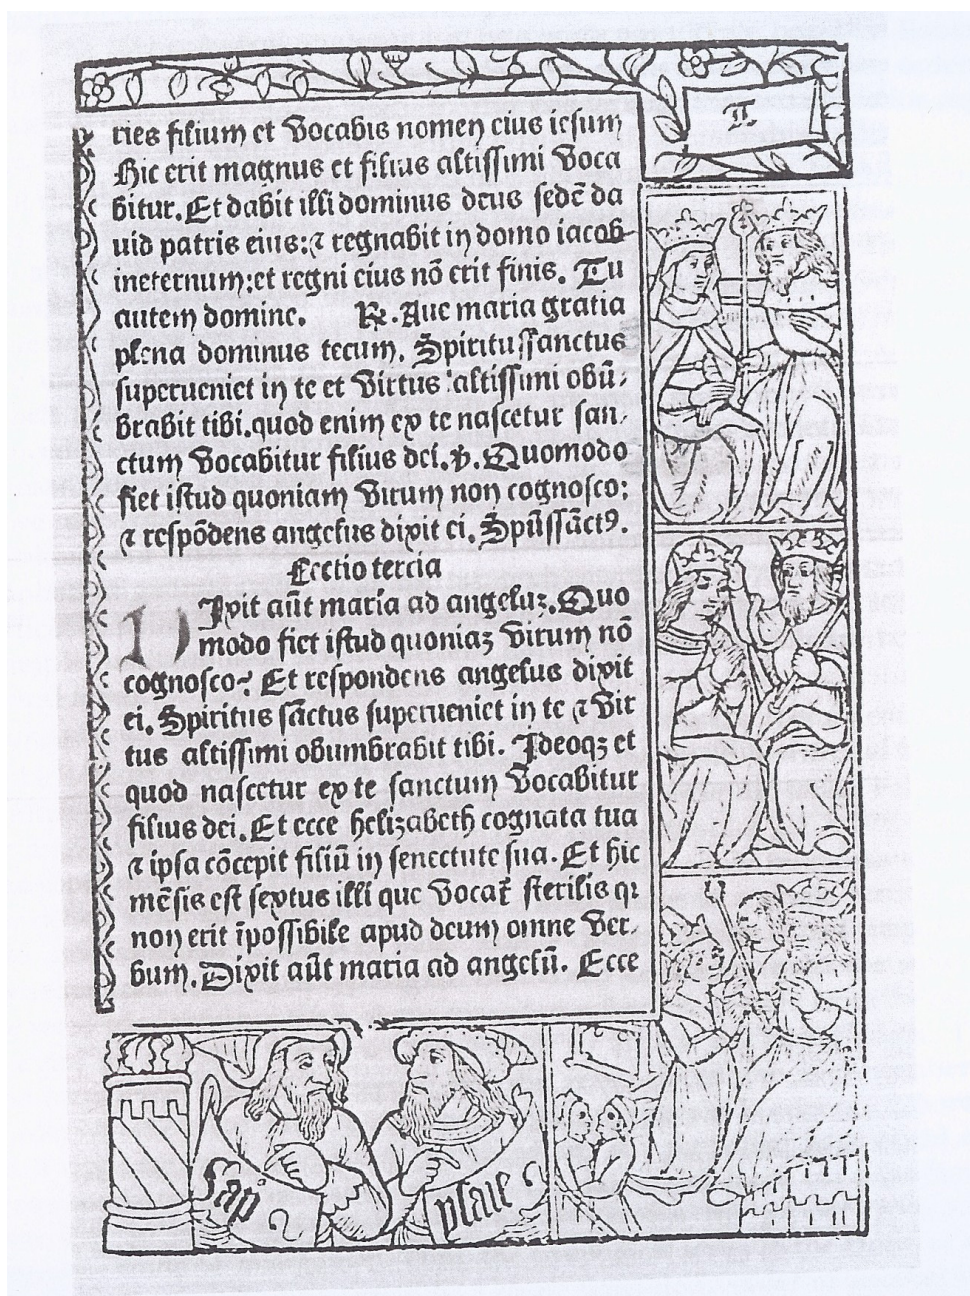 II.
ries filium et vocabis nomen eius iesum
Hic erit magnus et filius altissimi voca
bitur. Et dabit illi dominus deus sedē da
uid patris eius: ⁊ regnabit in domo iacob
ineternum; et regni eius nō erit finis. Tu
autem domine. ℟. Aue maria gratia
plena dominus tecum. Spiritussanctus
superueniet in te et virtus altissimi obū⸗
brabit tibi. quod enim ex te nascetur san⸗
ctum vocabitur filius dei. ℣. Quomodo
fiet istud quoniam virum non cognosco;
⁊ respōdens angelus dixit ei. Spūssāctꝰ.
Lectio tercia
DIxit aūt maria ad angeluꝫ. Quo
modo fiet istud quoniaꝫ virum nō
cognosco? Et respondens angelus dixit
ei. Spiritus sāctus superueniet in te ⁊ vir
tus altissimi obumbrabit tibi. Ideoqꝫ et
quod nascetur ex te sanctum vocabitur
filius dei. Et ecce helizabeth cognata tua
⁊ ipsa cōcepit filiū in senectute sua. Et hic
mēsis est sextus illi que vocat̄ sterilis qi
non erit īpossibile apud deum omne ver.
bum. Dixit aūt maria ad angelū. Ecce
Sap.
ysaie